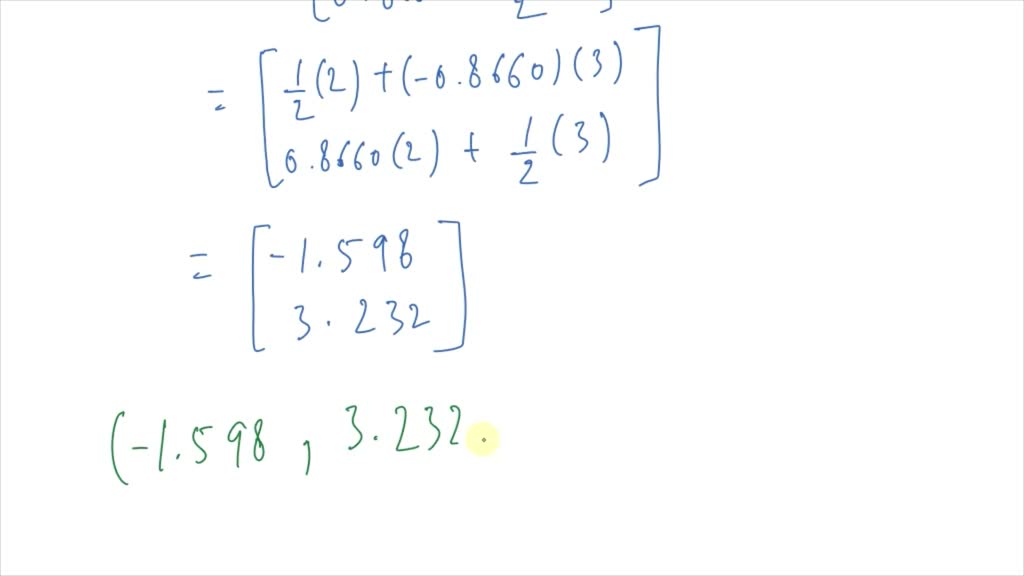 = [ 1/2 (2) + (-0.8660) (3)
0.8660 (2) + 1/2 (3) ]
= [ -1.598
3.232 ]
(-1.598 , 3.232